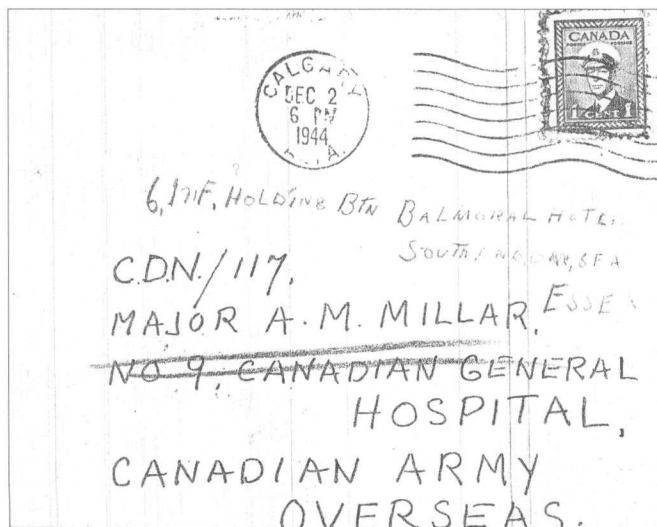 CANADA
POSTES POSTAGE
1 CENT 1
CALGARY
DEC 2
6 PM
1944
ALTA.
6, INF, HOLDING BTN BALMORAL HOTEL
SOUTHEND, ON, SEA
ESSEX
C.D.N./117.
MAJOR A. M. MILLAR.
NO 9, CANADIAN GENERAL
HOSPITAL,
CANADIAN ARMY
OVERSEAS.